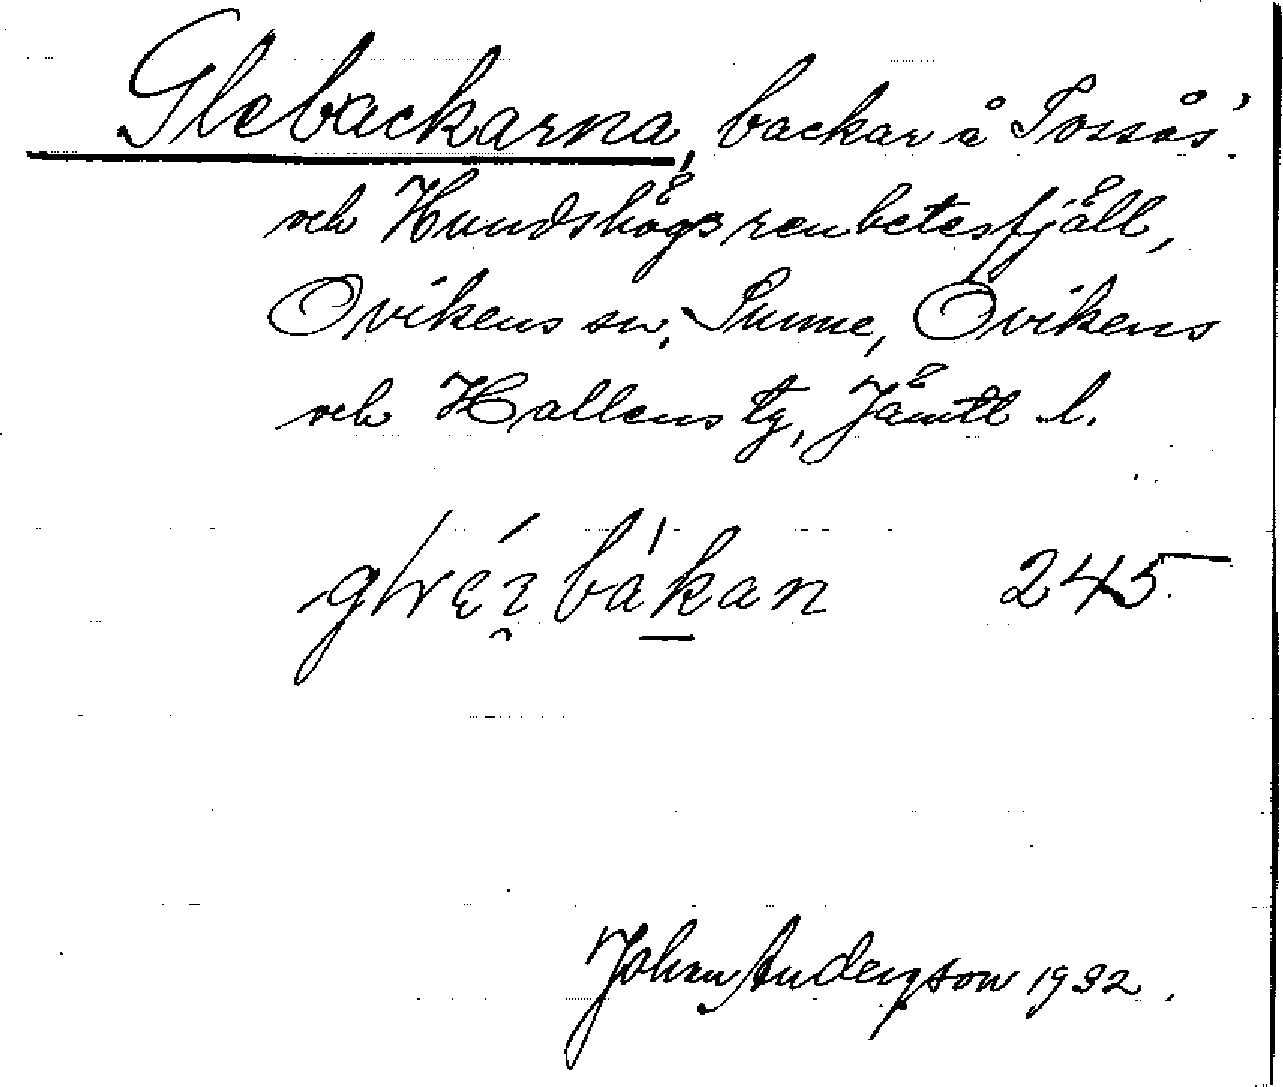 Glebackarna, backar å Tossås'
och Hundshögs renbetesfjäll,
Ovikens sn, Sunne, Ovikens
och Hallens tg, Jämtl l.
bákan 245
Johan Anderson 1932.